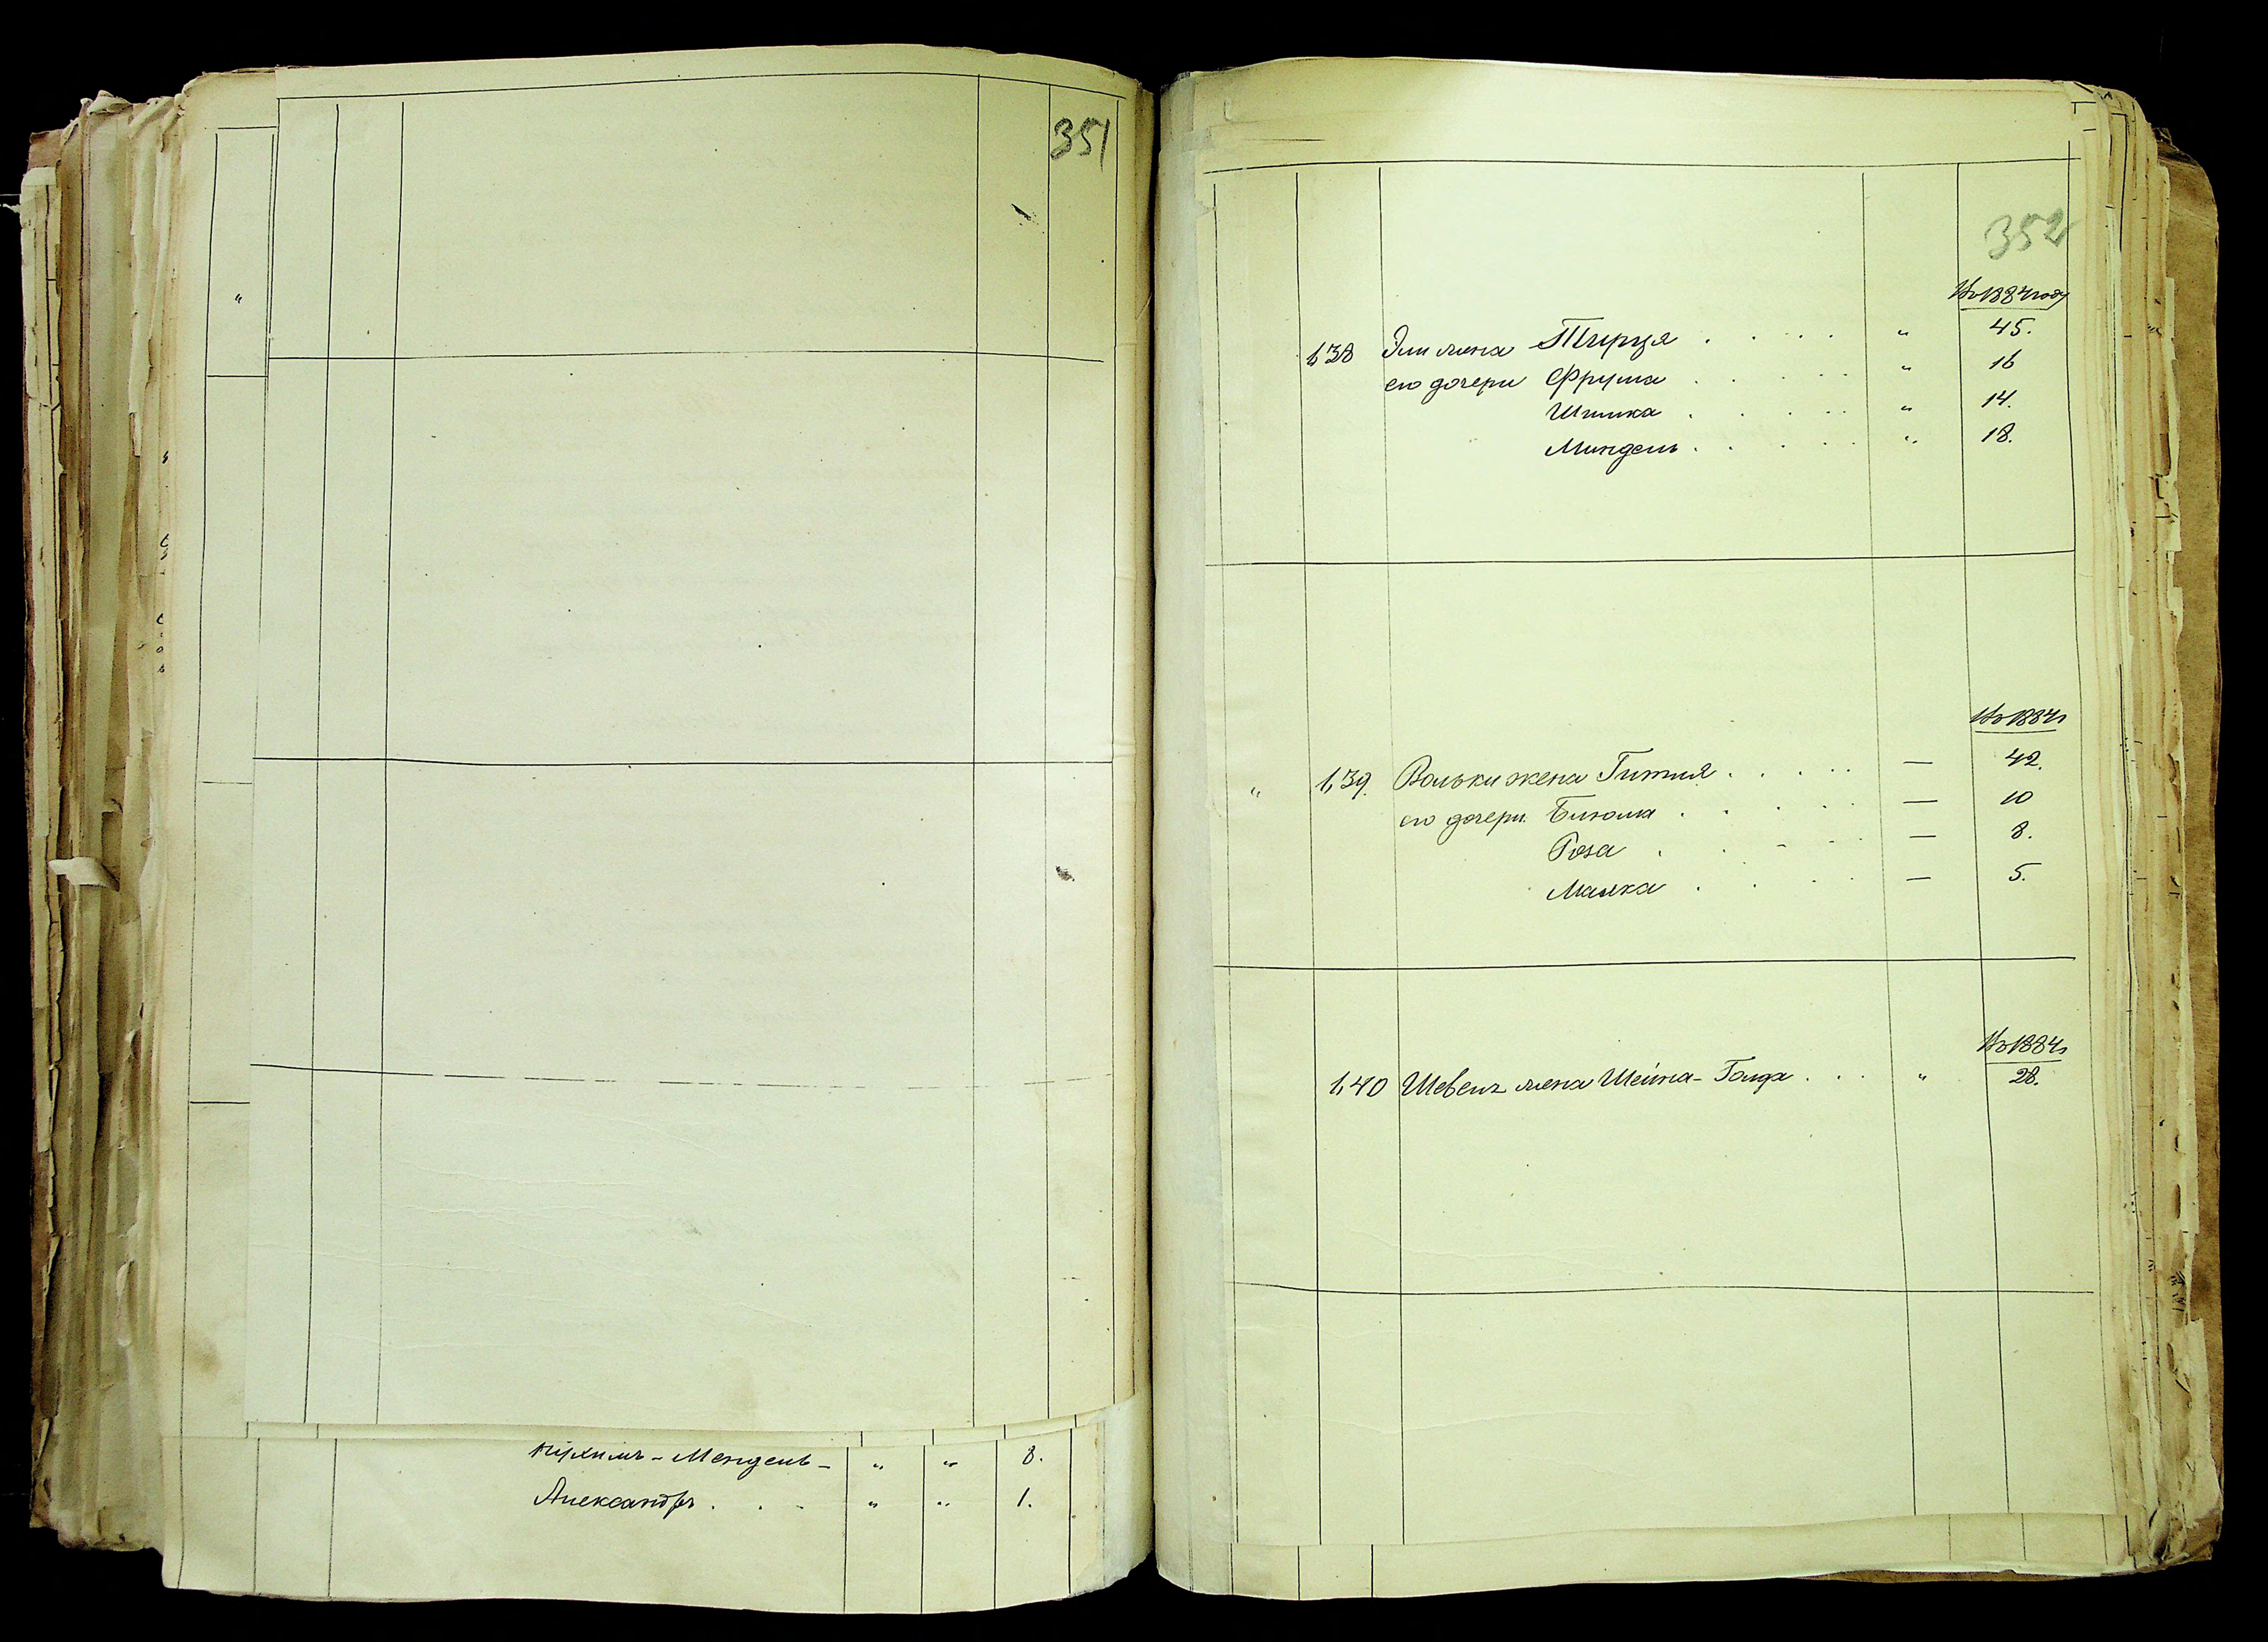 351
"
Нухимъ-Мендель - " " 8.
Александръ . . . " " 1.
352
Въ 1884 году
1,38 Эли жена Тируя . . . . " 45.
его дочери Фрума . . . . " 16
Шишка . . . . " 14.
Миндель . . . . " 18.
Въ 1884 г
" 1,39. Вольки жена Гитля . . . . — 42.
его дочери Бинома . . . . — 10
Роза . . . . — 8.
Малка . . . . — 5.
Въ 1884 г
1,40 Шевель жена Шейна-Голда . . . " 28.